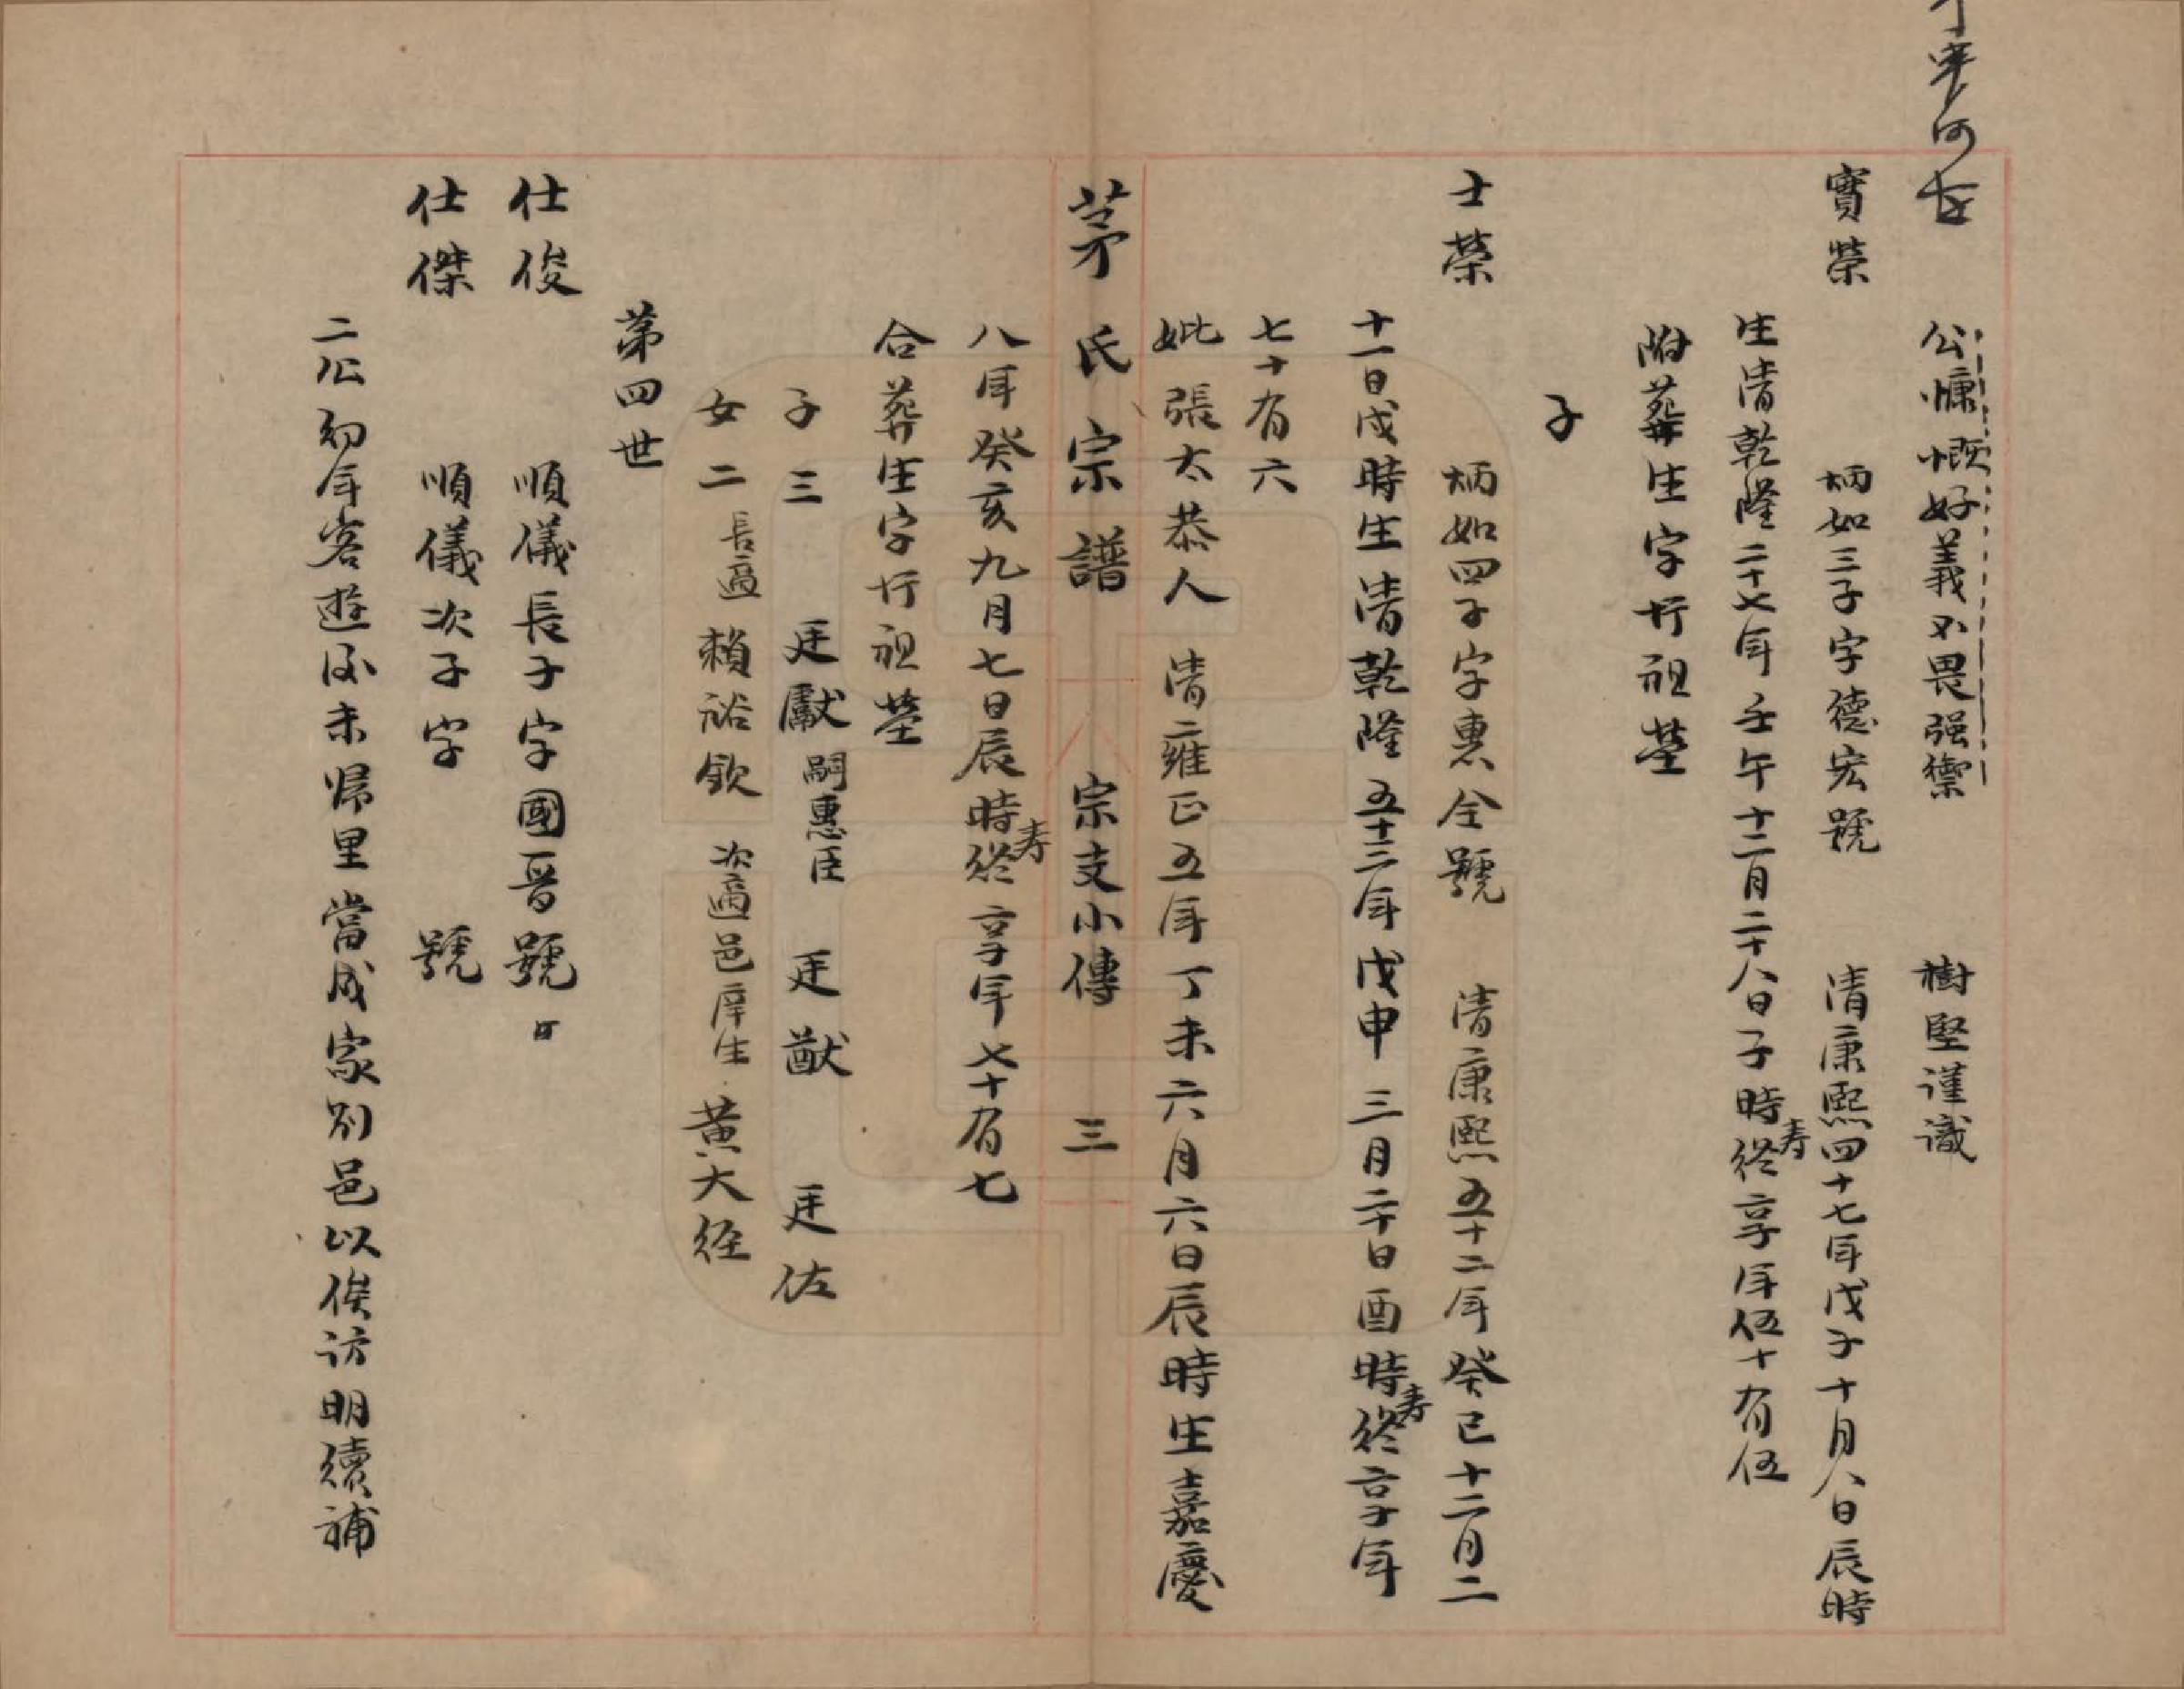 公慷慨好義不畏强禦　樹堅謹識
寶榮　炳如三子字德宏號　清康熙四十七年戊子十月八日辰時
生清乾隆二十七年壬午十二月二十八日子時寿終享年伍十有伍
附葬生字圩祖塋
子
士榮　炳如四子字惠全號　清康熙五十二年癸巳十二月二
十一日戌時生清乾隆五十三年戊申三月二十日酉時寿終享年
七十有六
妣張太恭人　清雍正五年丁未六月六日辰時生嘉慶
茅氏宗譜　宗支小傳　三
八年癸亥九月七日辰時寿終享年七十有七
合葬生字圩祖塋
子三　廷獻嗣惠臣　廷猷　廷佐
女二　長適賴裕欽　次適邑庠生黃大經
第四世
仕俊　順儀長子字國晋號
仕傑　順儀次子字　號
二公幼年客遊後未歸里當成家別邑以俟访明續補